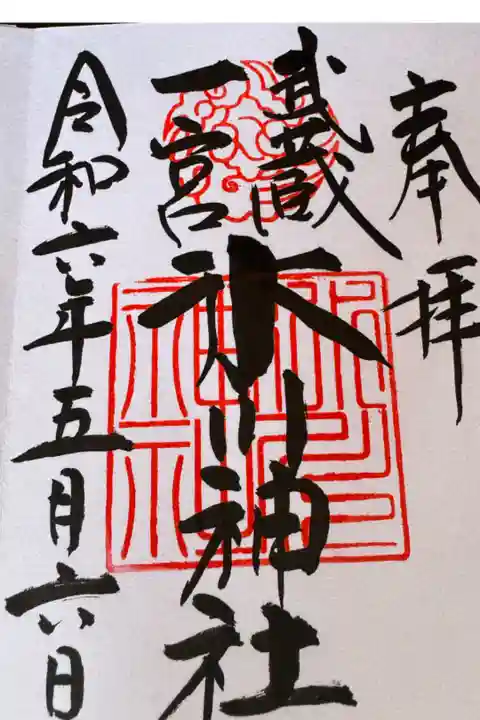 奉拝
武蔵
一宮
氷川神社
令和六年五月六日
氷川神社